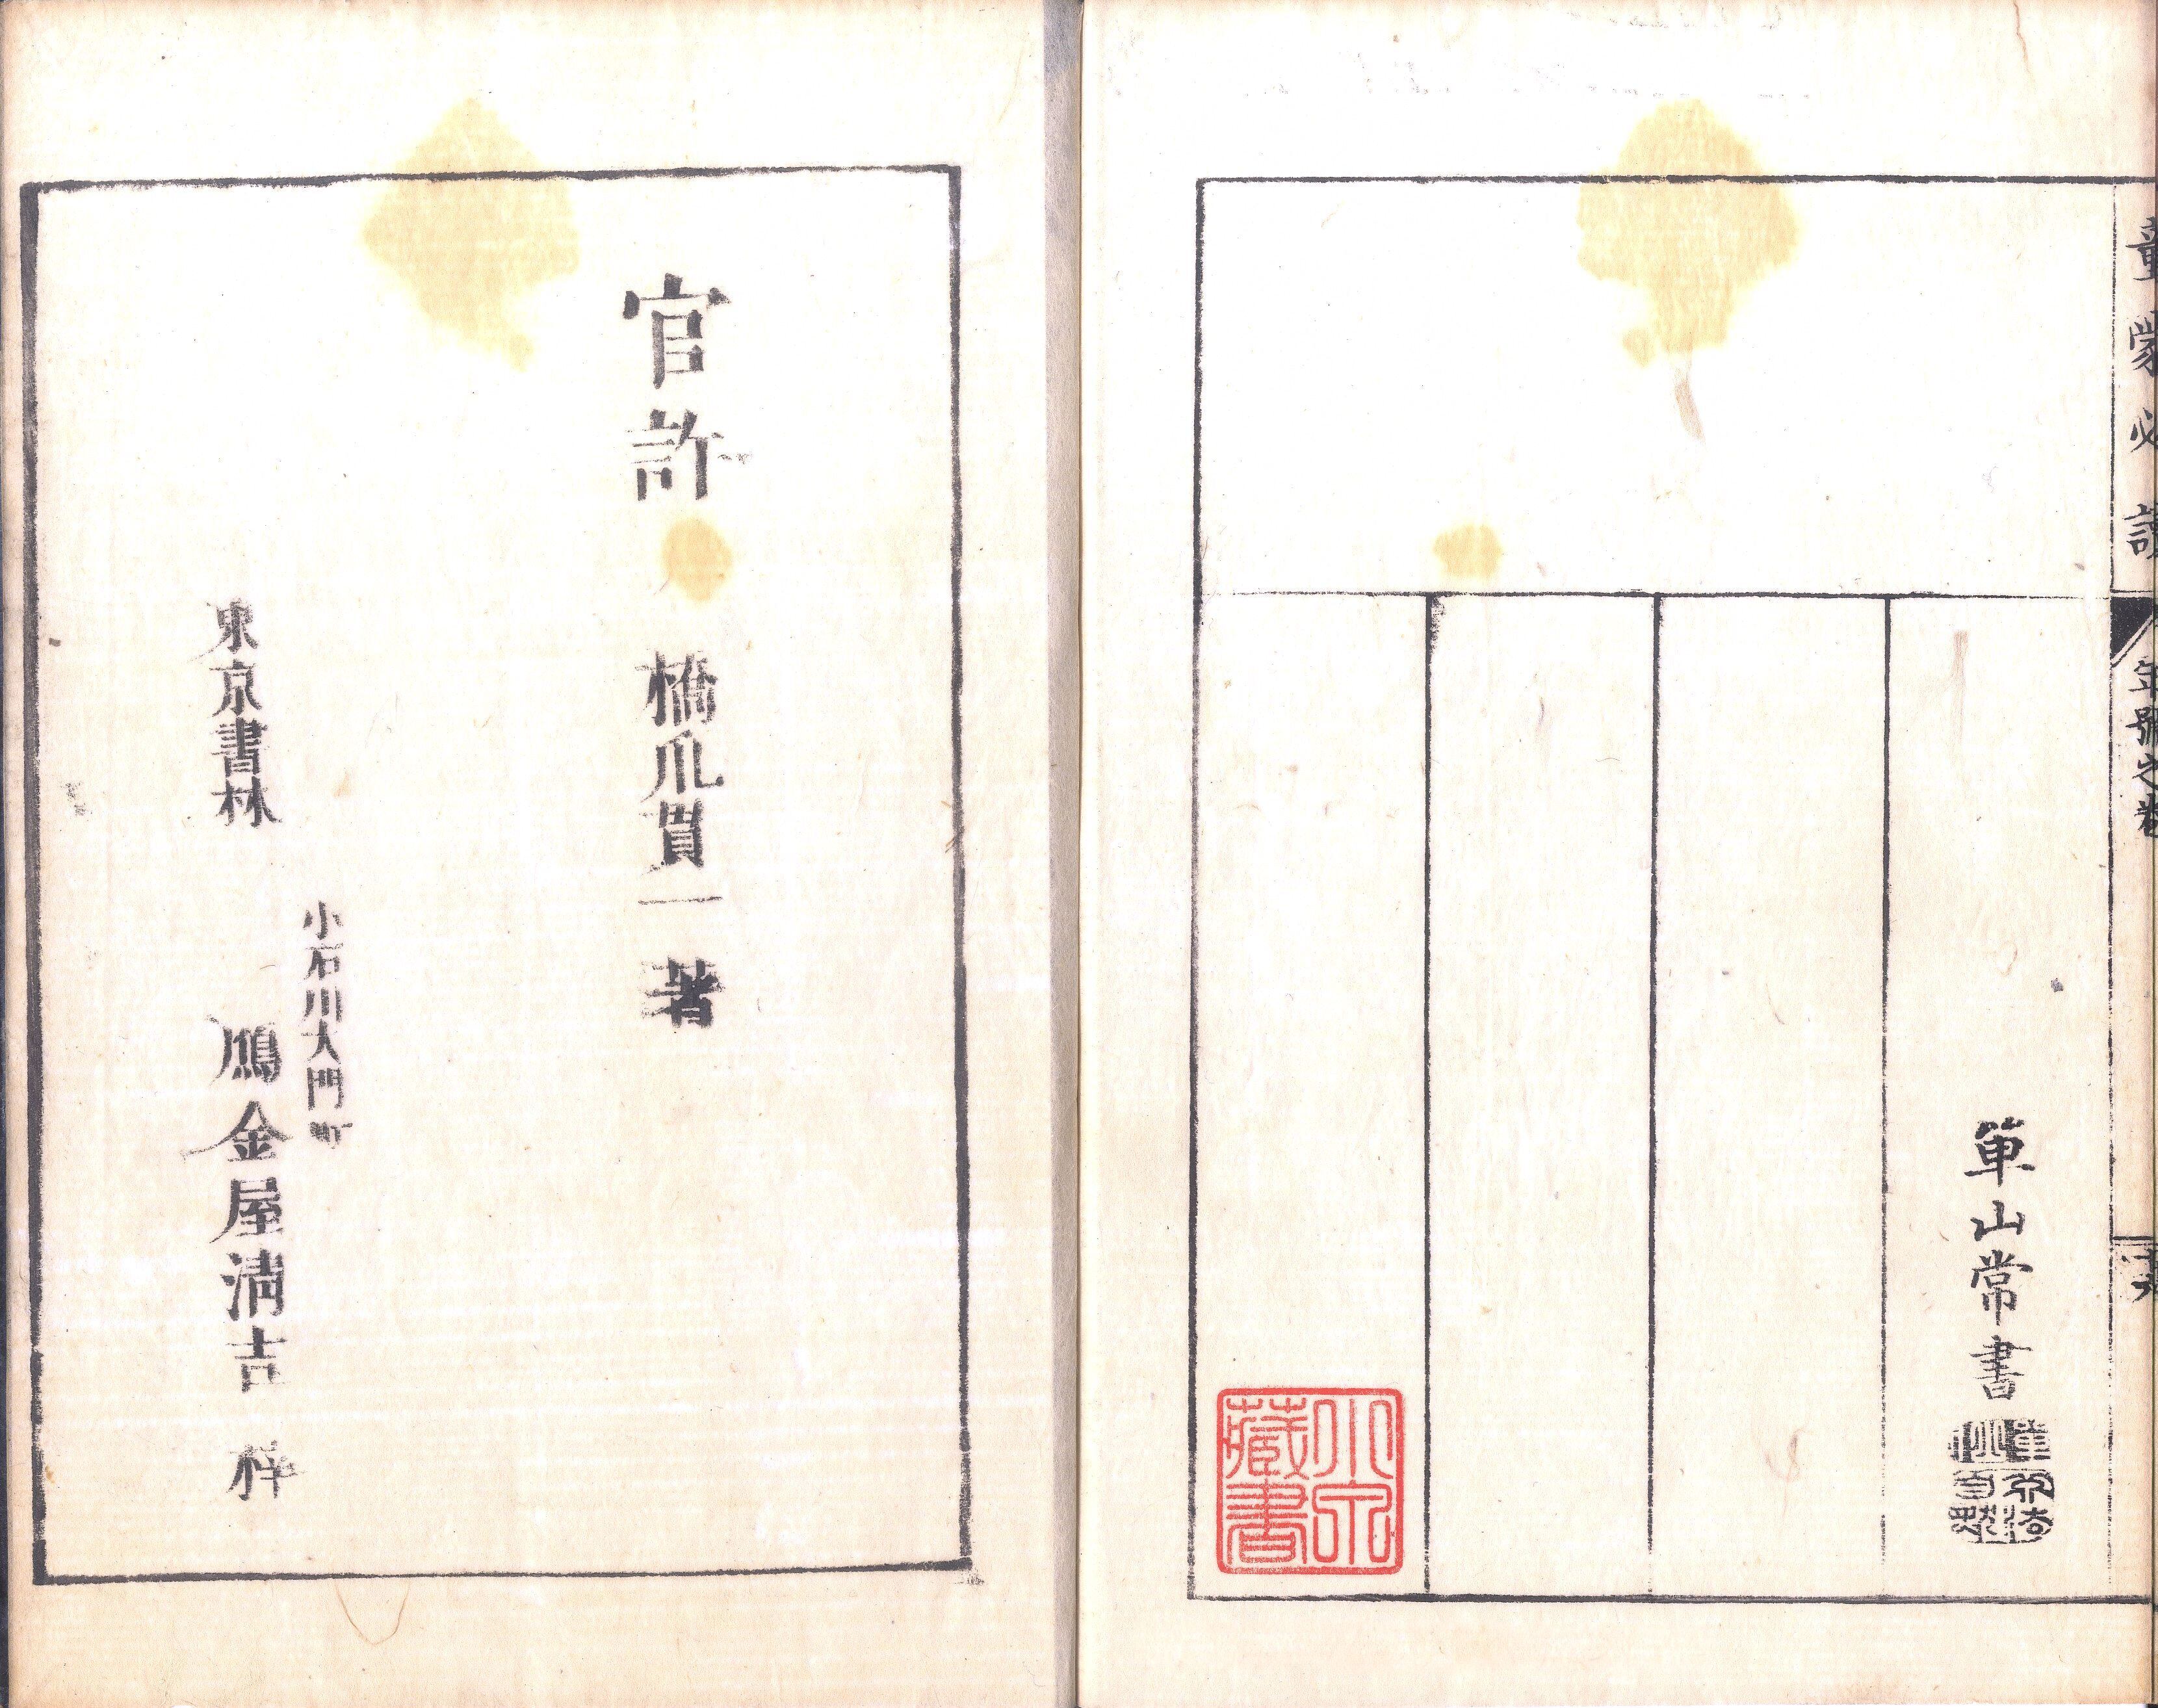 童蒙必讀
年號之卷
單山常書
小宗藏書
官許
橋爪貫一 著
小石川大門町
東京書林 鴈金屋清吉 梓